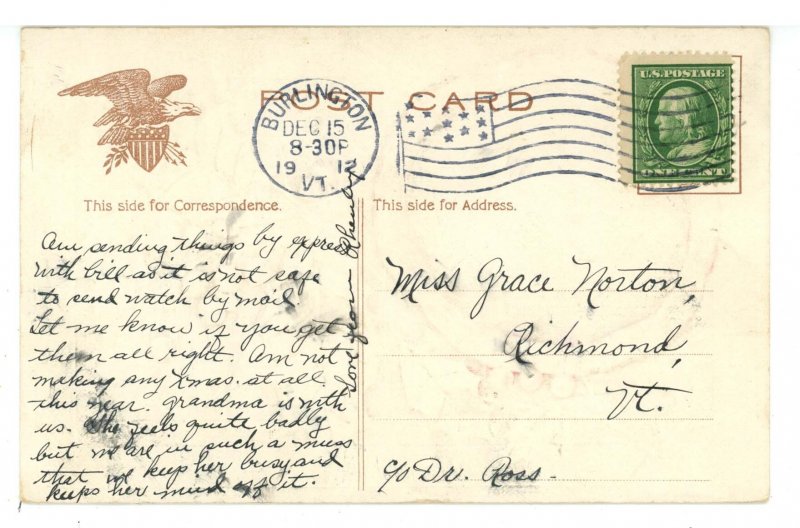 POST CARD
BURLINGTON
DEC 15
8-30P
1912
VT.
U.S. POSTAGE
ONE CENT
This side for Correspondence.
This side for Address.
Am sending things by express
with bill as it is not safe
to send watch by mail.
Let me know if you get
them all right. Am not
making any Xmas. at all
this year. Grandma is with
us. She feels quite badly
but we are in such a muss
that we keep her busy and
keeps her mind off it.
Love
Miss Grace Norton,
Richmond,
Vt.
c/o Dr. Ross-